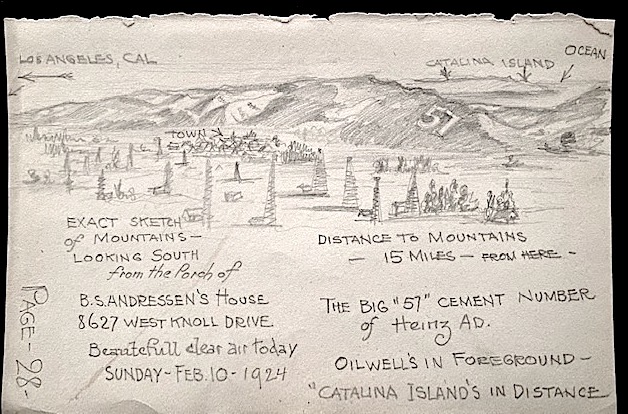 LOS ANGELES, CAL
CATALINA ISLAND
OCEAN
57
TOWN
EXACT SKETCH
of MOUNTAINS —
LOOKING SOUTH
from the Porch of
B.S. ANDRESSEN'S HOUSE
8627 WEST KNOLL DRIVE
Beautefull clear air today
SUNDAY - FEB. 10 - 1924
DISTANCE TO MOUNTAINS
— 15 MILES — FROM HERE -
THE BIG "57" CEMENT NUMBER
of Heinz AD.
OILWELL'S IN FOREGROUND —
"CATALINA ISLAND'S IN DISTANCE
PAGE - 28 -